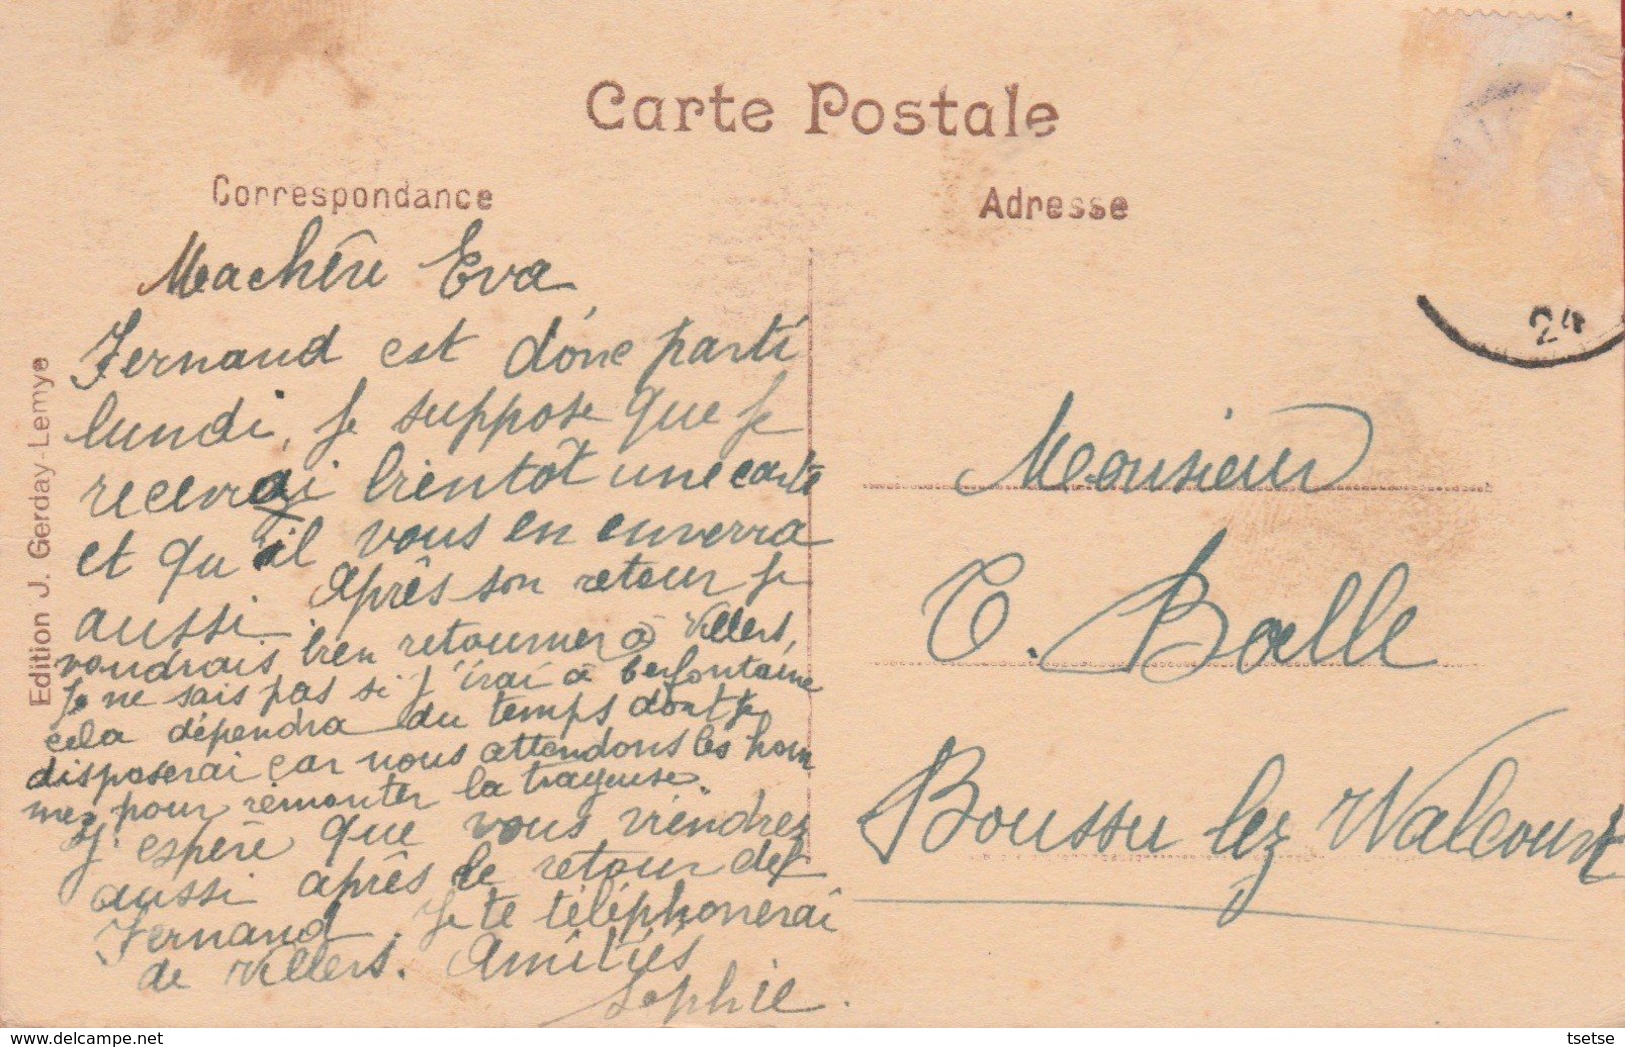 Carte Postale
Correspondance
Adresse
Machère Eva
Fernand est donc parti
lundi, je suppose que je
recevrai bientôt une carte
et qu'il vous en enverra
aussi. Après son retour je
voudrais bien retourner à Villers,
Je ne sais pas si j'irai à Cerfontaine
cela dépendra du temps dont je
disposerai car nous attendons les hom
mes pour remonter la trayeuse.
J'espère que vous viendrez
aussi après le retour de
Fernand. Je te téléphonerai
de Villers. Amitiés
Sophie.
Edition J. Gerday-Lemye
24
Monsieur
C. Balle
Boussu lez Walcourt
delcampe.net
tsetse